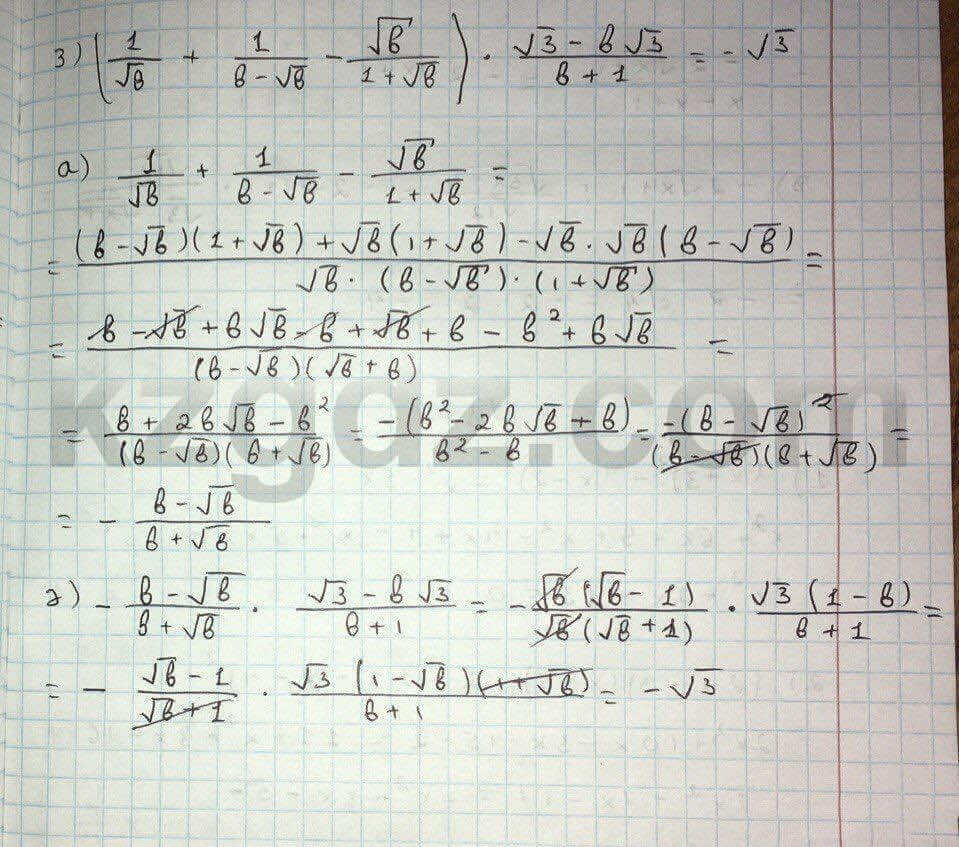 3) (1/√в + 1/(в - √в) - √в/(1 + √в)) · (√3 - в√3)/(в + 1) = - √3
а) 1/√в + 1/(в - √в) - √в/(1 + √в) =
= ((в - √в)(1 + √в) + √в(1 + √в) - √в · √в(в - √в))/(√в · (в - √в) · (1 + √в)) =
= (в - √в + в√в - в + √в + в - в² + в√в)/((в - √в)(√в + в)) =
= (в + 2в√в - в²)/((в - √в)(в + √в)) = -(в² - 2в√в + в)/(в² - в) = -(в - √в)²/((в - √в)(в + √в)) =
= - (в - √в)/(в + √в)
2) - (в - √в)/(в + √в) · (√3 - в√3)/(в + 1) = - √в(√в - 1)/(√в(√в + 1)) · √3(1 - в)/(в + 1) =
= - (√в - 1)/(√в + 1) · √3(1 - √в)(1 + √в)/(в + 1) = - √3
kzgdz.com